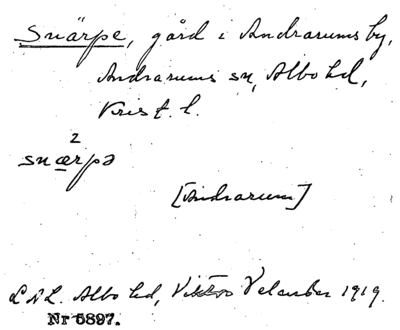 Snärpe, gård i Andrarums by,
Andrarums sn, Albo hd,
Krist. l.
2
snærpə
[Andrarum]
L N L. Albo hd, Viktor Velander 1919.
Nr 5897.